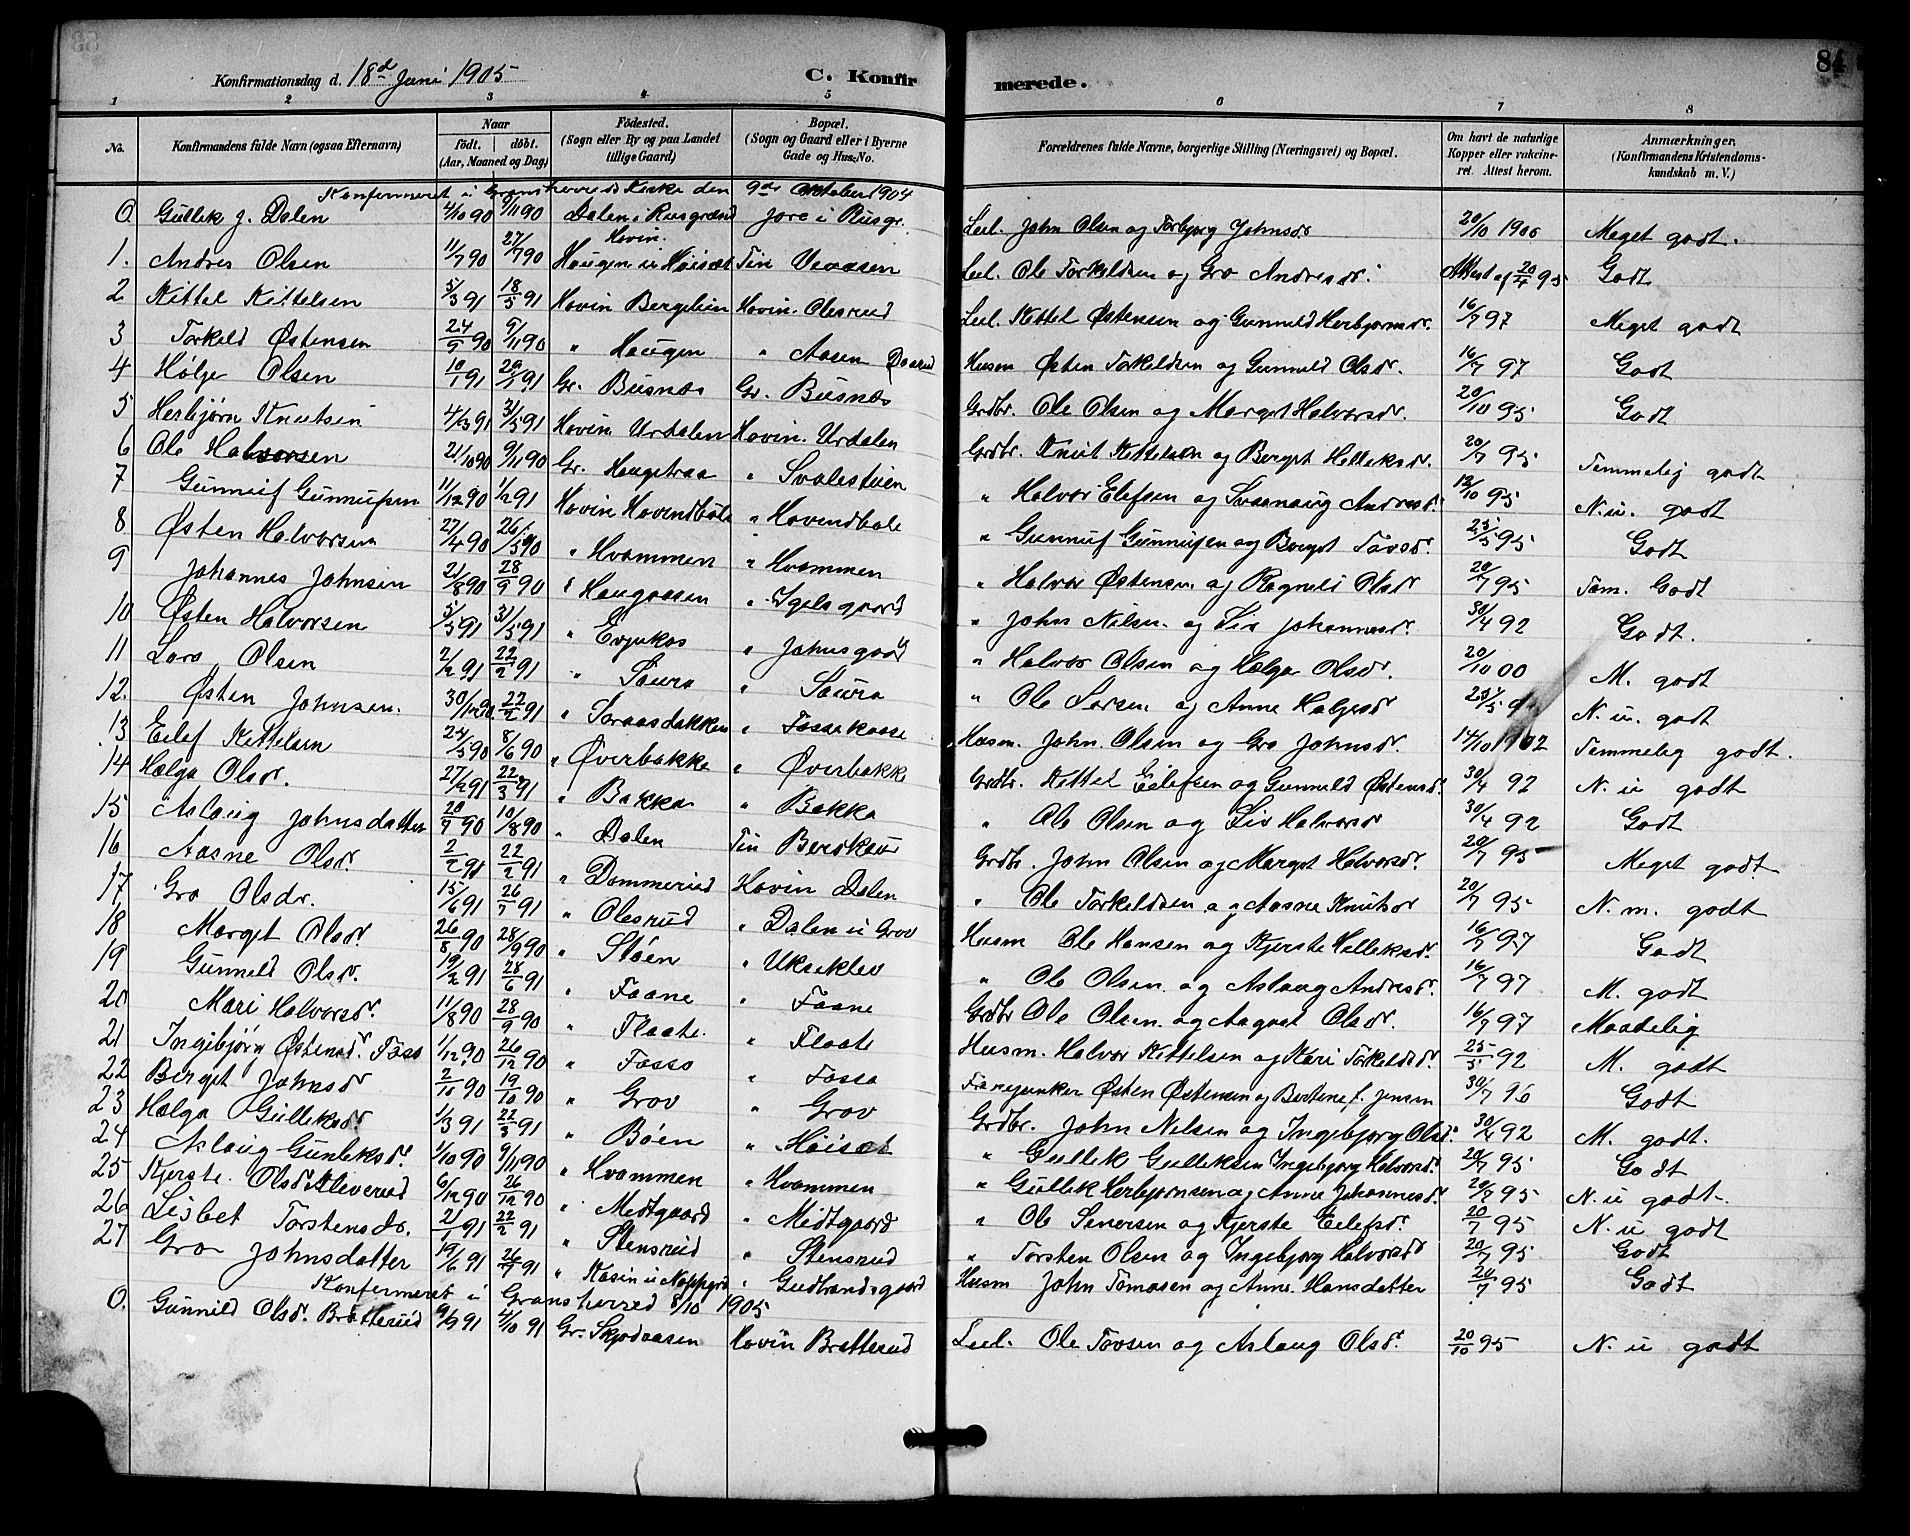 84
Konfirmationsdag d. 18d Juni 1905 C. Konfir merede.
1 2 3 4 5 6 7 8
No. Konfirmandens fulde Navn (ogsaa Efternavn) Naar født. døbt. (Aar, Maaned og Dag) Fødested. (Sogn eller By og paa Landet tillige Gaard) Bopæl. (Sogn og Gaard eller i Byerne Gade og Hus-No. Forældrenes fulde Navne, borgerlige Stilling (Næringsvei) og Bopæl. Om havt de naturlige Kopper eller vakcineret. Attest herom. Anmærkninger. (Konfirmandens Kristendomskundskab m. V.)
Konfermeret i Gransherred Kirke den 9de Oktober 1904
0. Gullek J. Dalen 4/10 90 9/11 90 Dalen i Rusgrænd Jore i Rusgr. Leil. John Olsen og Torbjørg Johnsdr 20/10 1900 Meget godt.
1. Andres Olsen 11/7 90 27/7 90 Hovin. Haugen u Høisæt Tin Veaasen Leil. Ole Torkeldsen og Gro Andresdr. Attest af 20/4 95 Godt
2 Kittel Kittelsen 5/3 91 18/5 91 Hovin Bergelien Hovin. Olesrud Leil. Kittel Østensen og Gunneld Herbjørnsdr. 16/7 97 Meget godt
3 Torkeld Østensen 24/9 90 9/11 90 " Haugen " Aasen Daarud Husm Østen Torkeldsen og Gunneld Olsdr. 16/7 97 Godt
4 Hølje Olsen 10/1 91 20/1 91 Gr. Busnæs Gr. Busnæs Grdbr. Ole Olsen og Marget Halvorsdr. 20/10 95 Godt
5 Herbjørn Knutsen 4/3 91 31/5 91 Hovin Urdalen Hovin. Urdalen Grdbr. Knut Kittelsen og Berget Helleksdr. 20/7 95 Temmelig godt
6 Ole Halvorsen 21/10 90 9/11 90 Gr. Haugetraa " Svalestuen " Halvor Elefsen og Svanaug Andresdr. 13/10 95 N. u. godt
7 Gunnuf Gunnufsen 11/12 90 1/2 91 Hovin Hovendbøle " Hovendbøle " Gunnuf Gunnufsen og Berget Tovsdr. 25/5 95 Godt
8 Østen Halvorsen 27/4 90 26/5 90 " Hvammen " Hvammen " Halvor Østensen og Ragnild Olsdr 20/7 95 Tem. Godt
9 Johannes Johnsen 21/8 90 28/9 90 " Haugaasen " Igelsgaard " John Nilsen og Liv Johannesdr. 30/4 92 Godt.
10 Østen Halvorsen 5/5 91 31/5 91 " Evjukas " Johnsgaard " Halvor Olsen og Hælga Olsdr. 20/10 00 M. godt
11 Lars Olsen 2/2 91 22/2 91 " Saura " Saura " Ole Larsen og Anne Høljesdr N. u. godt
12. Østen Johnsen. 30/12 90. 22/2 91 " Soraasdakken " Fossekaase Husm. John Olsen og Gro Johnsdr. 14/10 1902 Temmelig godt.
13 Eilef Kittelsen 24/5 90 8/6 90 " Øverbakke " Øverbakke Grdbr. Kittel Eilefsen og Gunneld Østensdr. 30/4 92 N. u godt
14 Hælga Olsdr. 27/2 91 22/3 91 " Bakka " Bakka " Ole Olsen og Liv Halvorsdr 30/4 92 Godt
15 Aslaug Johnsdatter 20/7 90 10/8 90 " Dalen Tin Berskaas Grdbr. John Olsen og Marget Halvorsdr. 20/7 95 Meget godt.
16 Aasne Olsdr. 2/2 91 22/2 91 " Dommerud Hovin Dalen " Ole Torkeldsen og Aasne Knutsdr 20/7 95 N. m. godt
17 Gro Olsdr. 15/6 91 26/7 91 " Olesrud " Dalen u Grov Husm Ole Hansen og Kjerste Helleksdr. 16/7 97 Godt
18 Marget Olsdr. 26/8 90 28/9 90 " Støen " Ukseklev " Ole Olsen og Aslaug Andresdr. 16/7 97 M. godt
19 Gunneld Olsdr. 19/2 91 28/6 91 " Faane " Faane Grdbr Ole Olsen og Aagaat Olsdr. 16/7 97 Maadelig
20 Mari Halvorsdr. 11/8 90 28/9 90 " Flaate. " Flaate Husm. Halvor Kittelsen og Kari Torkeldsdr. 25/5 92 M. godt
21 Ingebjørg Østensdr. Fosso 1/12 90 26/12 90 " Fosso " Fosso Fanejunker Østen Østensen og Bertene f. Jensen 30/7 96 Godt
22 Berget Johnsdr 2/10 90 19/10 90 " Grov " Grov Grdbr. John Nelsen og Ingebjørg Olsdr. 30/4 92 M. godt.
23 Hælga Gulleksdr. 1/3 91 22/3 91 " Bøen " Høisæt " Gullik Gulleksen Ingebjørg Halvorsdr. 20/7 95 Godt
24 Aslaug Gunleksdr. 1/10 90 9/11 90 " Hvammen " Hvammen " Gullik Herbjørnsen og Anne Johannesdr. 20/7 95 N. u godt.
25 Kjerste. Olsdr. Kleverud 6/12 90 26/12 90 " Medtgaard " Midtgaard " Ole Seversen og Kjerste Eilefsdr. 20/7 95 N. u godt
26 Lisbet Torstensdr. 21/1 91 22/2 91 " Stensrud " Stensrud " Torsten Olsen og Ingebjørg Halvorsdr 20/7 95 Godt
27 Gro Johnsdatter 19/6 91 26/7 91 " Kasin u Noppgrd " Gudbrandsgaard Husm John Tomasen og Anne Hansdatter 20/7 95 Godt
Konfermeret i Gransherred 8/10 1905
0. Gunnild Olsdr. Bratterud 9/9 91 4/10 91 Gr. Skjødaasen Hovin Bratterud Leil. Ole Tovsen og Aslaug Olsdr. 20/10 95 N. u godt